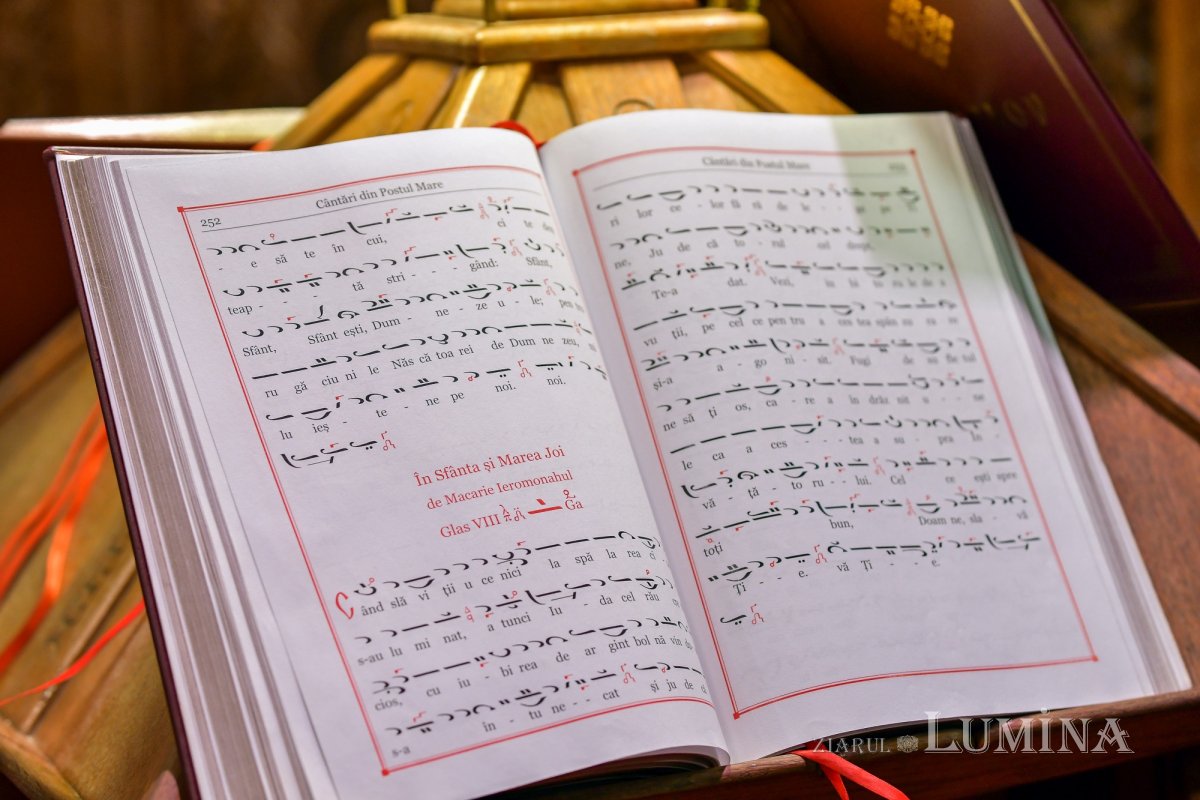 252
Cântări din Postul Mare
- e să te în cui, ci te deș
teap - - - - tă stri - - - gând: Sfânt,
Sfânt, Sfânt ești, Dum - ne - ze u - le; pen tru
ru gă ciu ni le Năs că toa rei de Dum ne zeu,
lu ieș - - te - ne pe noi. noi.
În Sfânta și Marea Joi
de Macarie Ieromonahul
Glas VIII Ga
Când slă vi ții u ce nici la spă la rea ci
s-au lu mi nat, a tunci Iu - da cel rău
cios, cu iu - bi rea de ar gint bol nă vin du
s-a în - tu ne - - cat și ju de ci
Cântări din Postul Mare
ri lor ce - lor fă ră de le - ge pe
ne, Ju de că to - rul cel drept,
Te-a dat. Vezi, iu bi to ru le de a
vu ții, pe cel ce pen tru a ces tea spân zu ra re
și-a a - go ni - sit. Fugi de su fle tul
ne să ți os, ca - re a în drăz nit u - - ne
le ca a ces - - - tea a su - pra În -
vă - ță - to ru - lui. Cel ce ești spre
toți bun, Doam ne, sla - vă
Ți - - - e. vă Ți - - e.
ZIARUL LUMINA